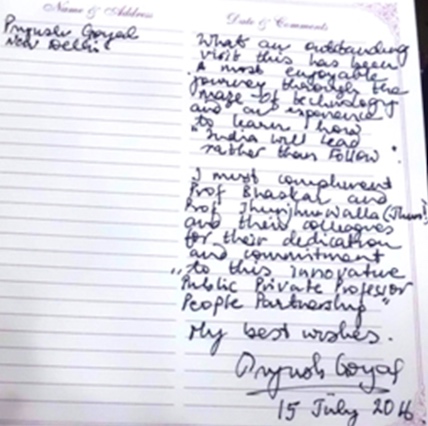 Name & Address
Date & Comments
Piyush Goyal
New Delhi
What an outstanding
visit this has been
A most enjoyable
journey through the
maze of technology
and an experience
to learn how
"India will lead
rather than Follow".
I must compliment
Prof Bhaskar and
Prof Jhunjhunwalla (Jhun²)
and their colleagues
for their dedication
and commitment
to this innovative
"Public Private Professor
People Partnership"
My best wishes.
Piyush Goyal
15 July 2016.